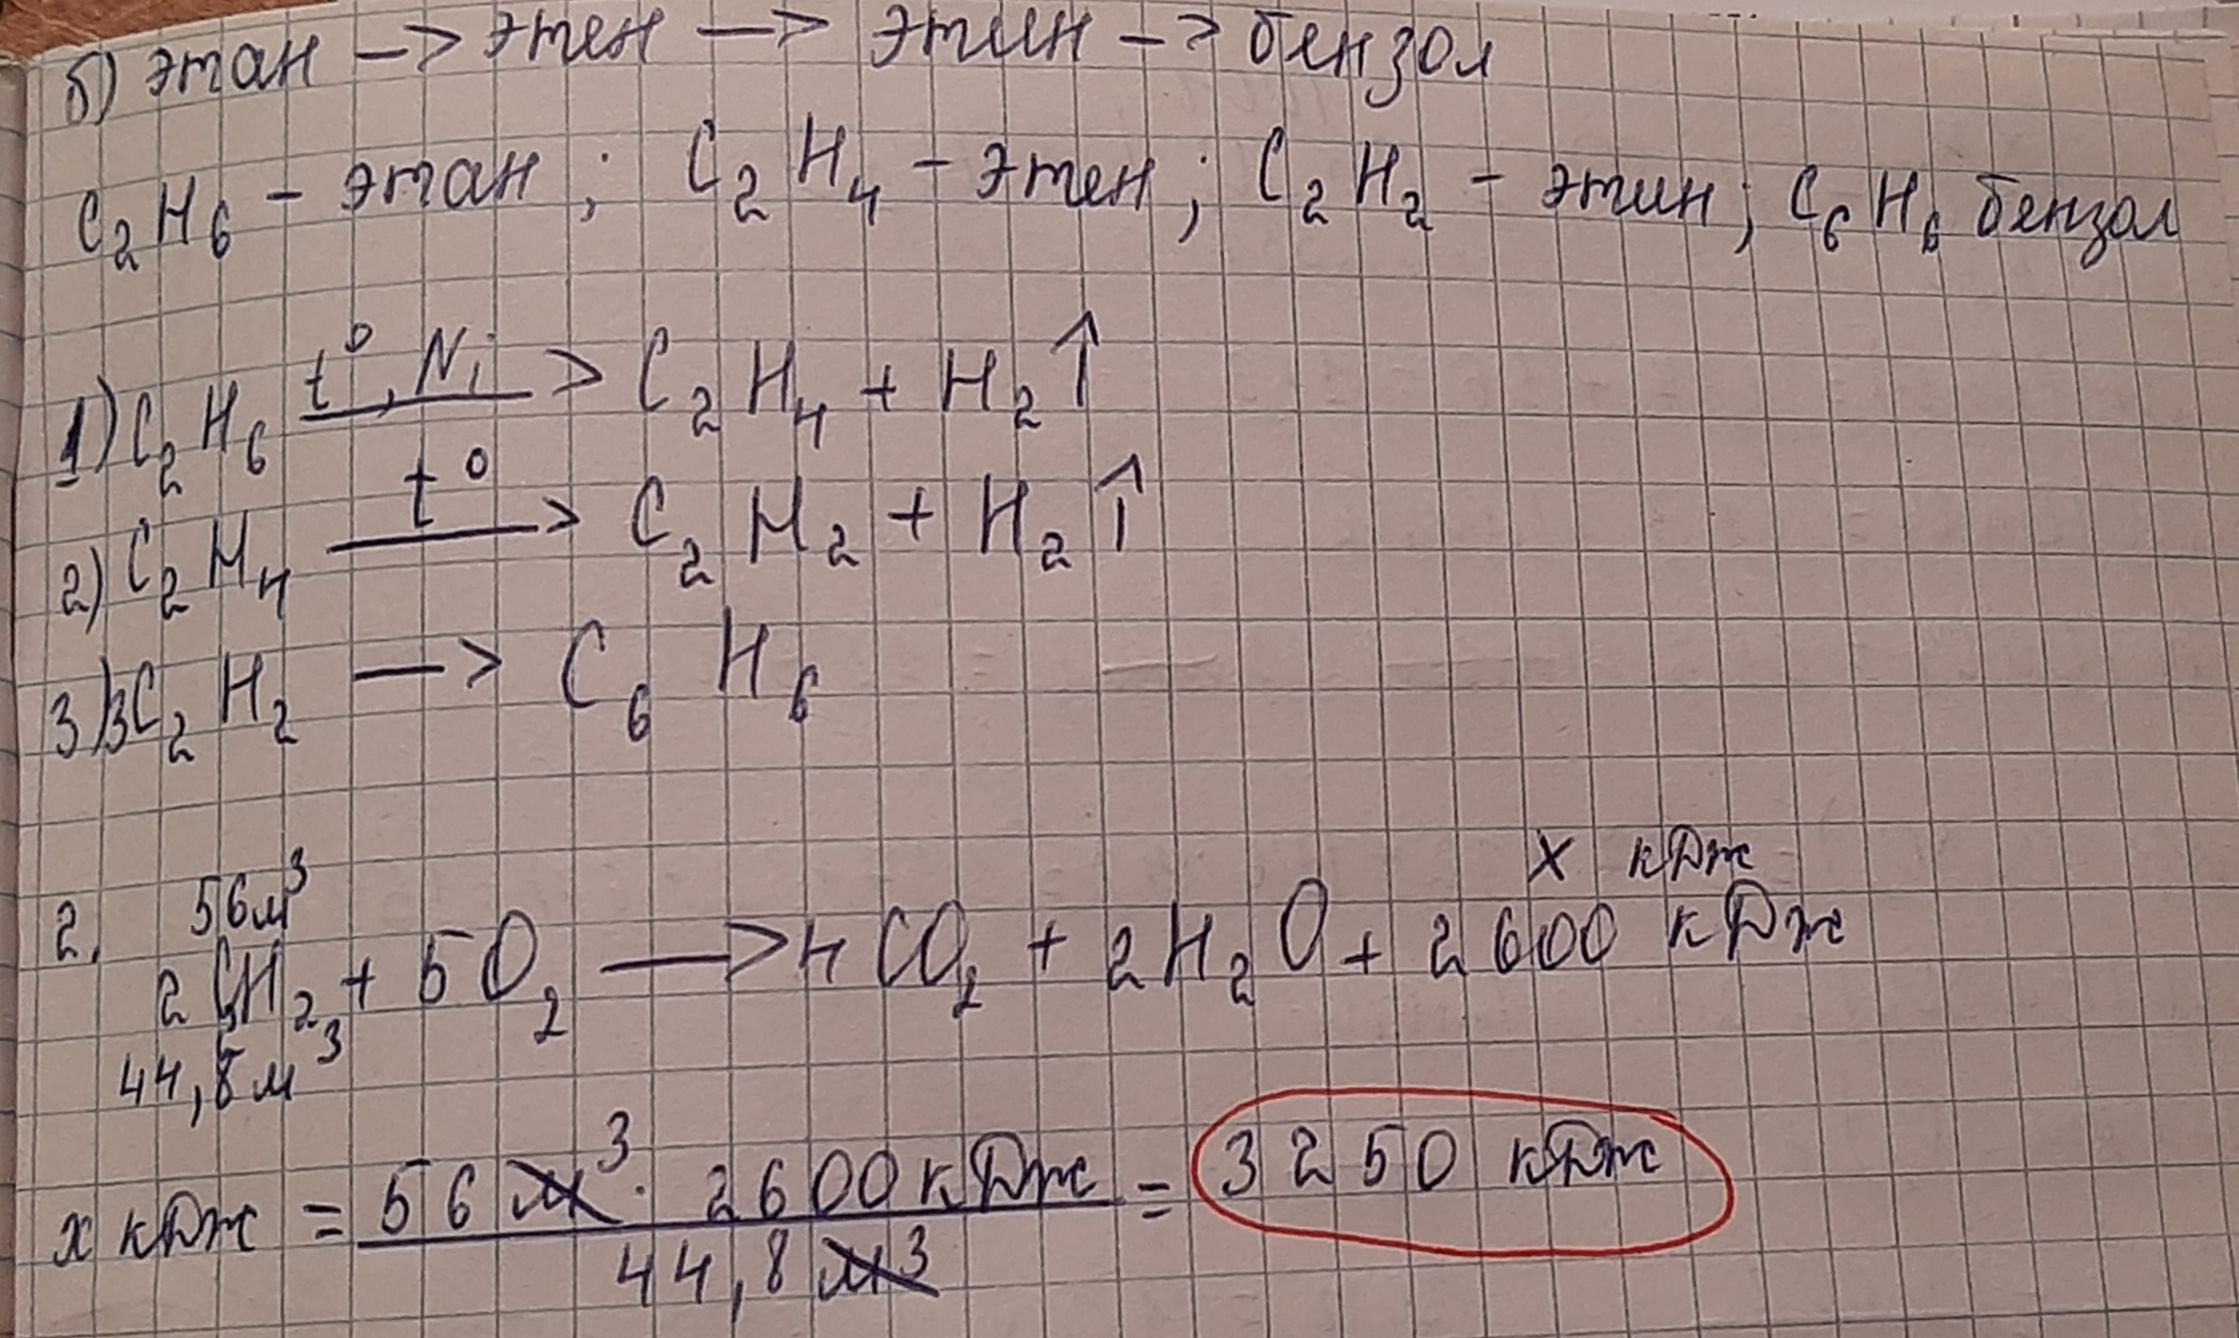 б) этан —> этен —> этин —> бензол
C₂H₆ - этан ; C₂H₄ - этен ; C₂H₂ - этин ; C₆H₆ бензол
1) C₂H₆ t°, Ni —> C₂H₄ + H₂↑
2) C₂H₄ t° —> C₂H₂ + H₂↑
3) 3C₂H₂ —> C₆H₆
56м³ x кДж
2. 2C₂H₂ + 5O₂ —> 4CO₂ + 2H₂O + 2600 кДж
44,8м³
x кДж = 56 м³ · 2600 кДж / 44,8 м³ = 3250 кДж